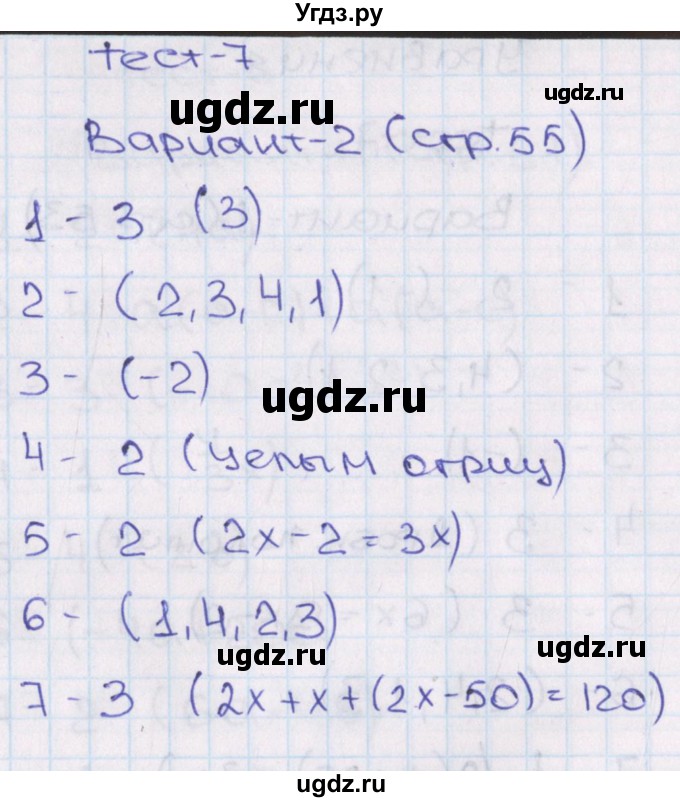 Угдз.ру
Тест-7
ugdz.ru
ugdz.ru
Вариант-2 (стр.55)
1 - 3 (3)
2 - (2,3,4,1)
3 - (-2)
ugdz.ru
4 - 2 (целым отриц)
5 - 2 (2x-2=3x)
6 - (1,4,2,3)
ugdz.ru
ugdz.ru
7 - 3 (2x+x+(2x-50)=120)
ugdz.ru